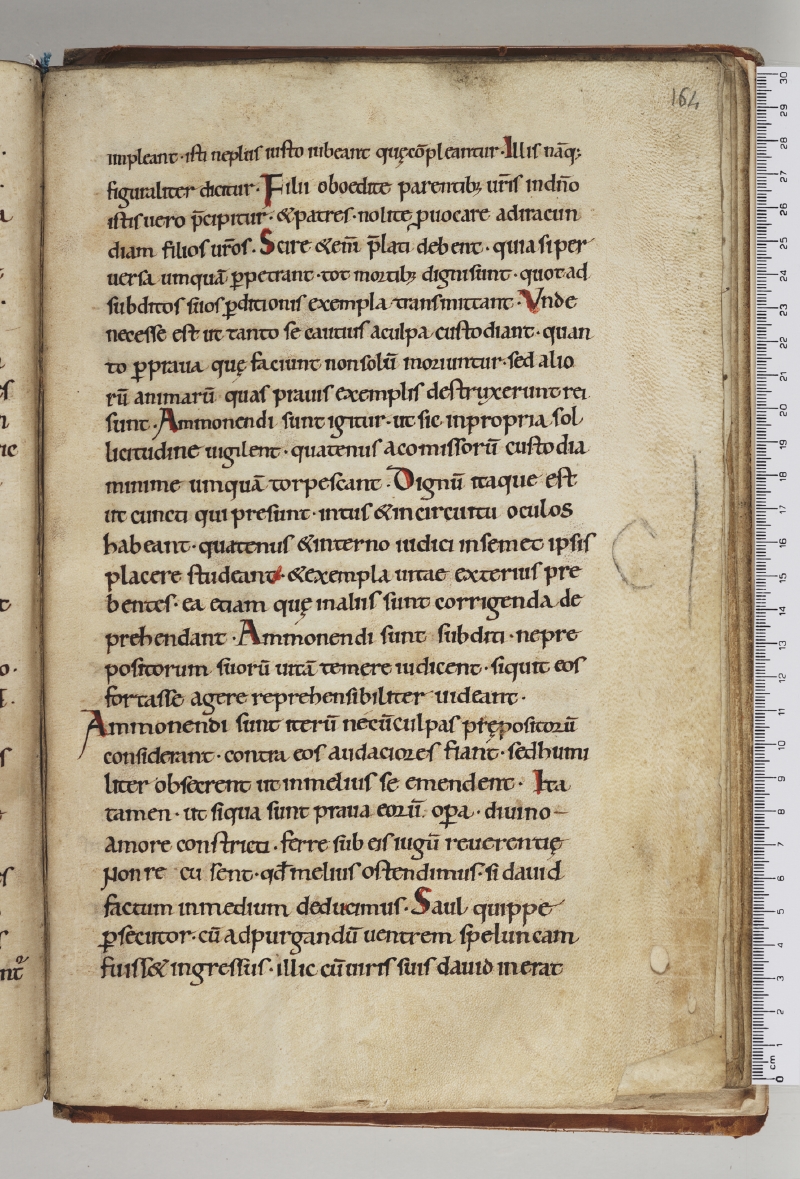 164
impleant · isti neplus iusto iubeant quęcōpleantur · Illis nāq;
figuraliter dicitur · Filii oboedite parentib; ur̄is indn̄o
istis uero p̄cipitur · &patres · nolite ꝓuocare adiracun
diam filios ur̄os · Scire &em̄ p̄lati debent · quia si per
uersa umquā ꝑpetrant · tot mortib; digni sunt · quot ad
subditos suos ꝑditionis exempla transmittant · Vnde
necesse est ut tanto se cautius aculpa custodiant · quan
to ꝑpraua quę faciunt nonsolū moriuntur · sed alio
rū animarū quas prauis exemplis destruxerunt rei
sunt · Ammonendi sunt igitur · ut sic inpropria sol
licitudine uigilent · quatenus acomissorū custodia
minime umquā torpescant · Dignū itaque est
ut cuncti qui presunt · intus &incircuitu oculos
habeant · quatenus &interno iudici insemet ipsis
placere studeant · &exempla uitae exterius pre
bentes · ea etiam quę inaliis sunt corrigenda de
prehendant · Ammonendi sunt subditi · nepre
positorum suorū uitā temere iudicent · siquit eos
fortasse agere reprehensibiliter uideant ·
Ammonendi sunt iterū necūculpas prępositorū
considerant · contra eos audaciores fiant · sedhumi
liter obsecrent ut inmelius se emendent · Ita
tamen · ut siqua sunt praua eorū oꝑa · diuino
amore constricti · ferre sub eis iugū reuerentię
Non re cu sent · qd̄ melius ostendimus · si dauid
factum inmedium deducimus · Saul quippe
ꝑsecutor · cū adpurgandū uentrem speluncam
fuiss& ingressus · illic cū uiris suis dauid inerat